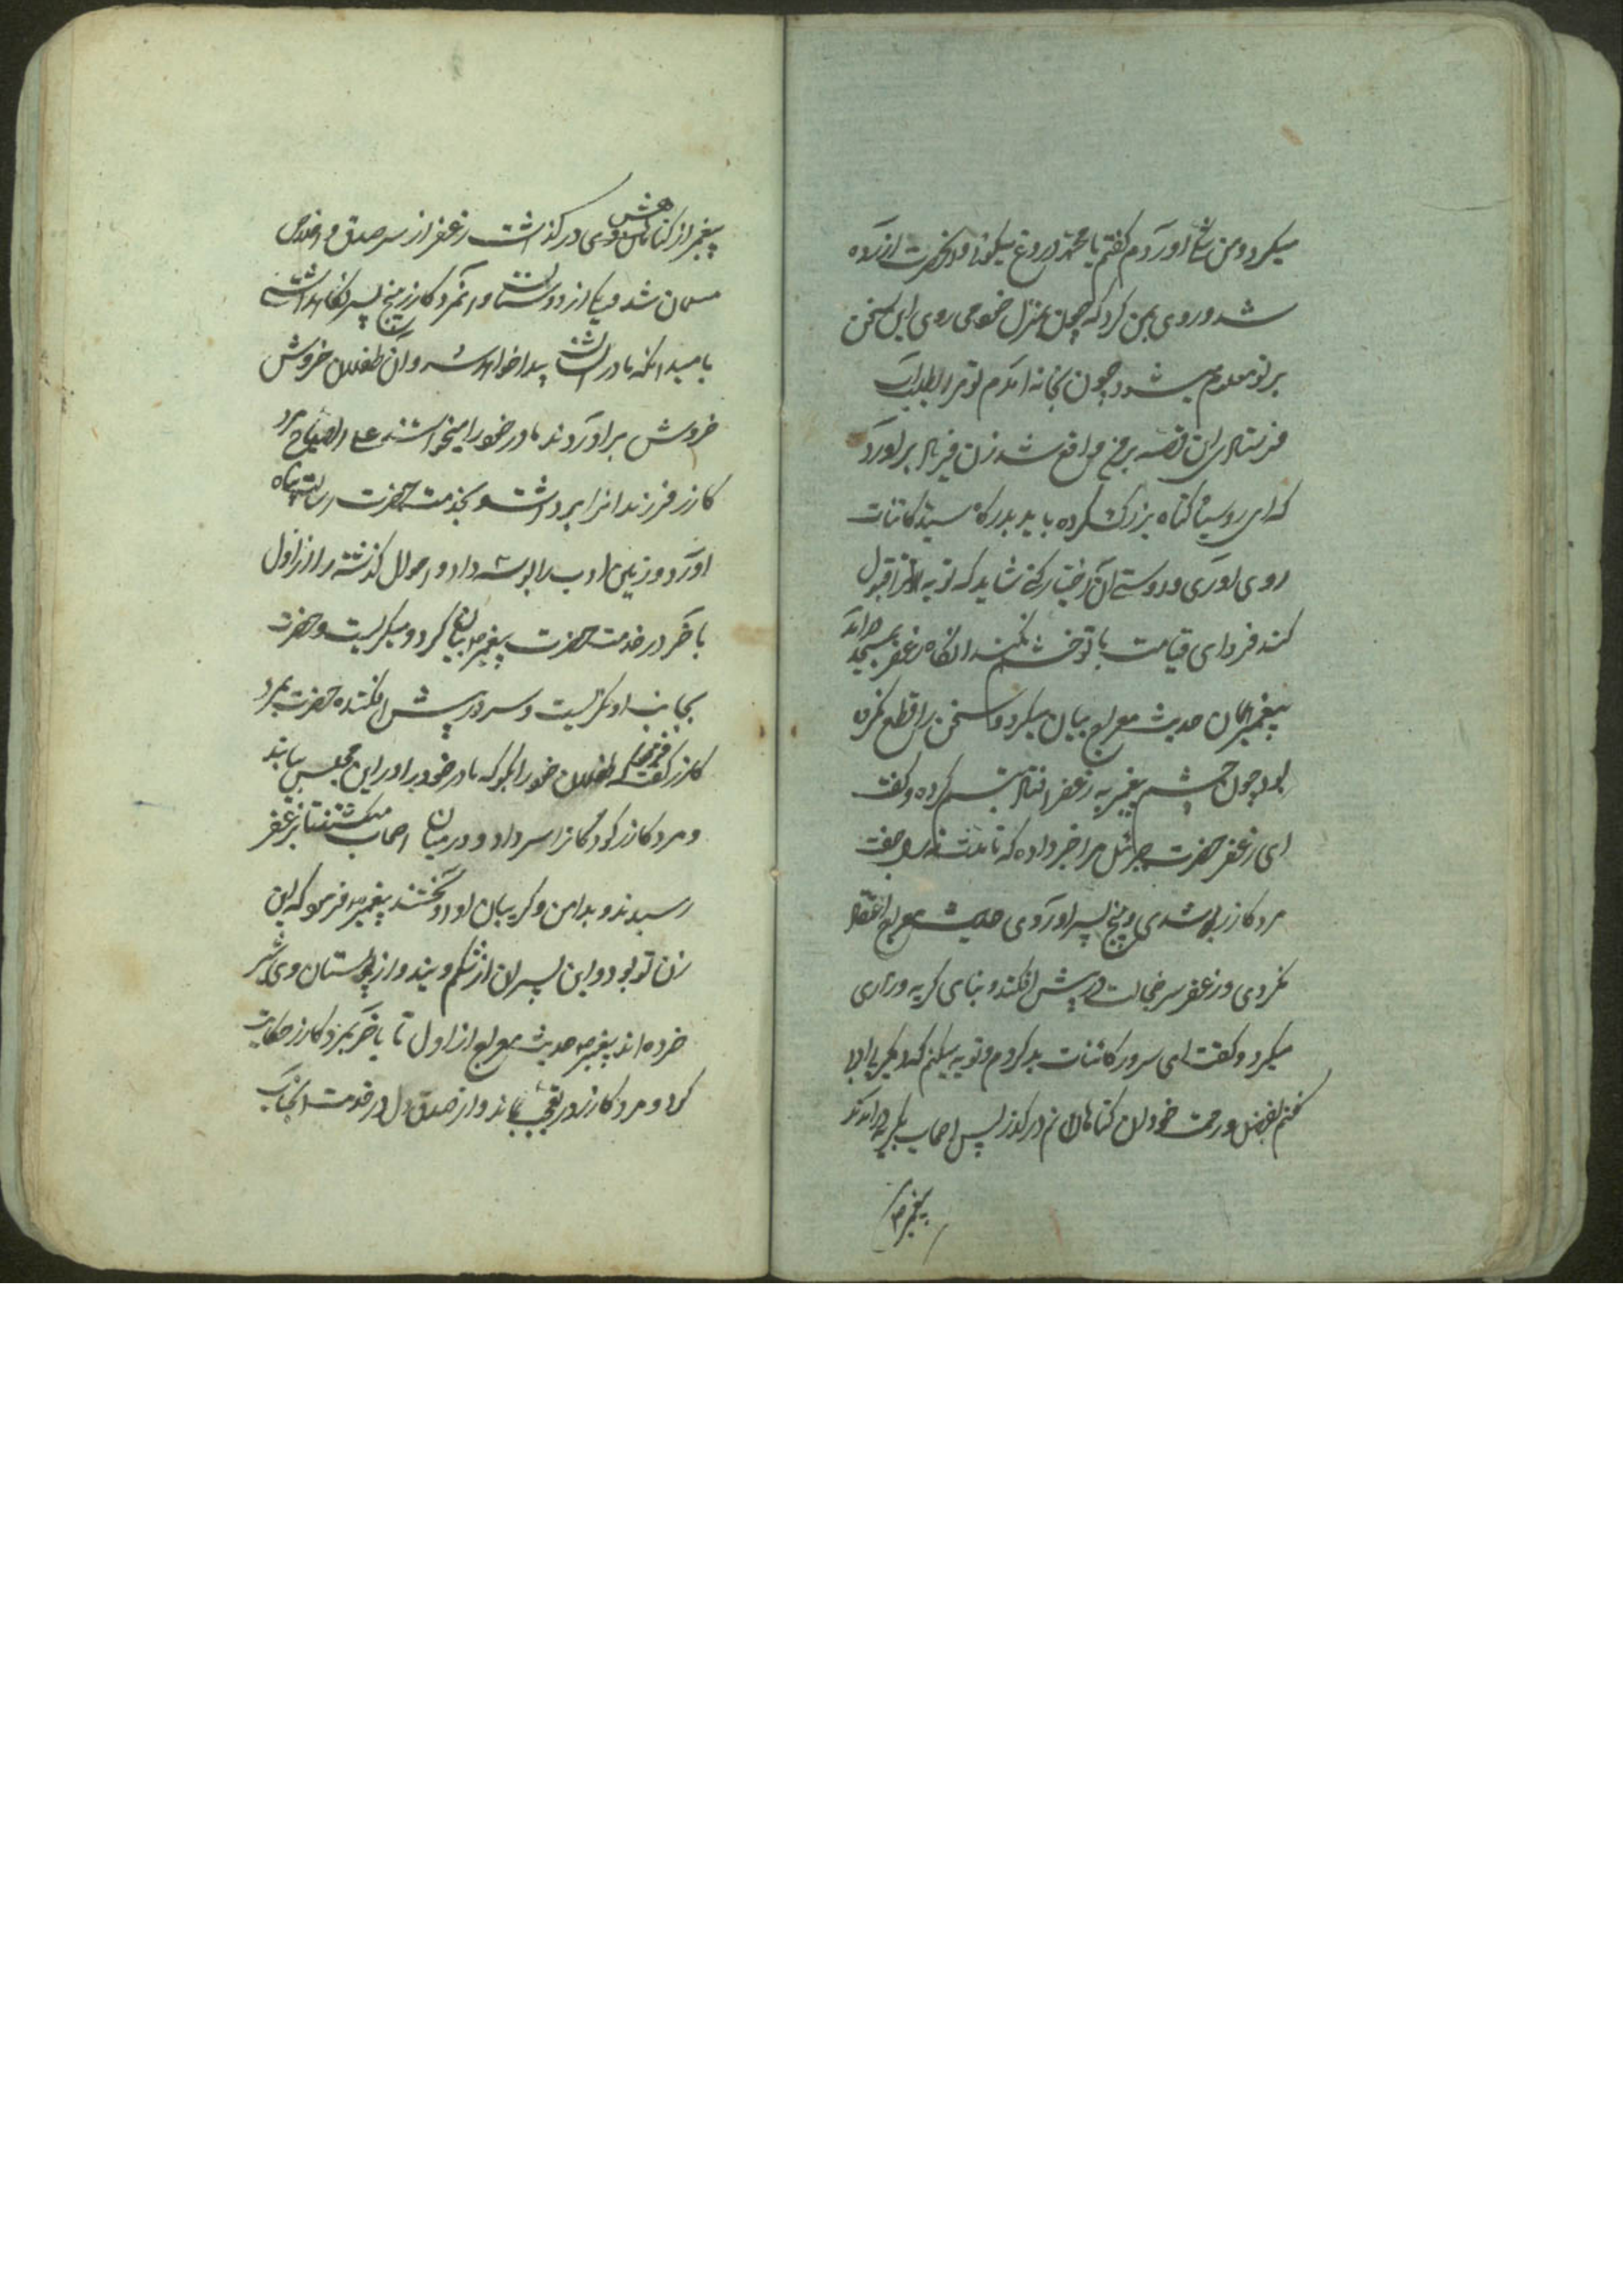 میکرد و من شک آوردم گفتم یا محمد دروغ میکوئی آنحضرت ازرده
شد و روی بمن کرد که چون بمنزل خود می روی این سخن
بر تو معلوم میشود چون بخانه امدم تو مرا بطلب آب
فرستادی این قصه بر من واقع شد زن فریاد براورد
که ای روسیاه کناه بزرک کرده باید بدرکاه سید کائنات
روی اوری و دوستی آن اختیار کنی شاید که توبه ترا قبول
کند فردای قیامت با تو خشم نکند انکاه زعفر بمسجد درآمد
پیغمبر همان حدیث معراج بیان میکرد و سخن را قطع نکرده
بود چون چشم پیغمبر به زعفر افتاد تبسم کرده و کفت
ای زعفر حضرت جبرئیل مرا خبر داده که تا مدت سال جفت
مرد کازر شدی و پنج پسر اوردی حدیث معراج اعتقاد
نکردی و زعفر سر خجالت در پیش افکند و بنای کریه و زاری
میکرد و کفت ای سرور کائنات بد کردم و توبه میکنم که دیکر بی ادبی
نکنم بفضل و رحمت خود از کناهان من درکذر پس اصحاب بکریه درامدند
پیغمبر ص
پیغمبر از کناهانش وی درکذشت زعفر از سر صدق و اخلاص
مسلمان شد و یکی از دوستان و انمرد کازر پنج پسر نکاه داشت
بامید انکه مادرشان پیدا خواهد شد و آن طفلان خروش
خروش براوردند مادر خود را میخواستند علی الصباح مرد
کازر فرزندانرا برداشت و بخدمت حضرت رسالت پناه
اورد و زمین ادب را بوسه داد و احوال کذشته را از اول
تا باخر در خدمت حضرت پیغمبر ص بیان کرد و میکریست و حضرت
بجانب او نکریست و سر در پیش افکنده حضرت بمرد
کازر کفت که طفلان خود را بکو که مادر خود را در این مجلس بیابند
و مرد کازر کودکانرا سر داد و در میان اصحاب میکشتند تا بزعفر
رسیدند و بدامن و کریبان او درآویختند پیغمبر ص فرمود که این
زن تو بود و این پسران از شکم ویند و از پستان وی شیر
خورده اند پیغمبر ص حدیث معراج از اول تا باخر بمرد کازر حکایت
کرد و مرد کازر در تعجب بماند و از صدق دل در خدمت انجناب